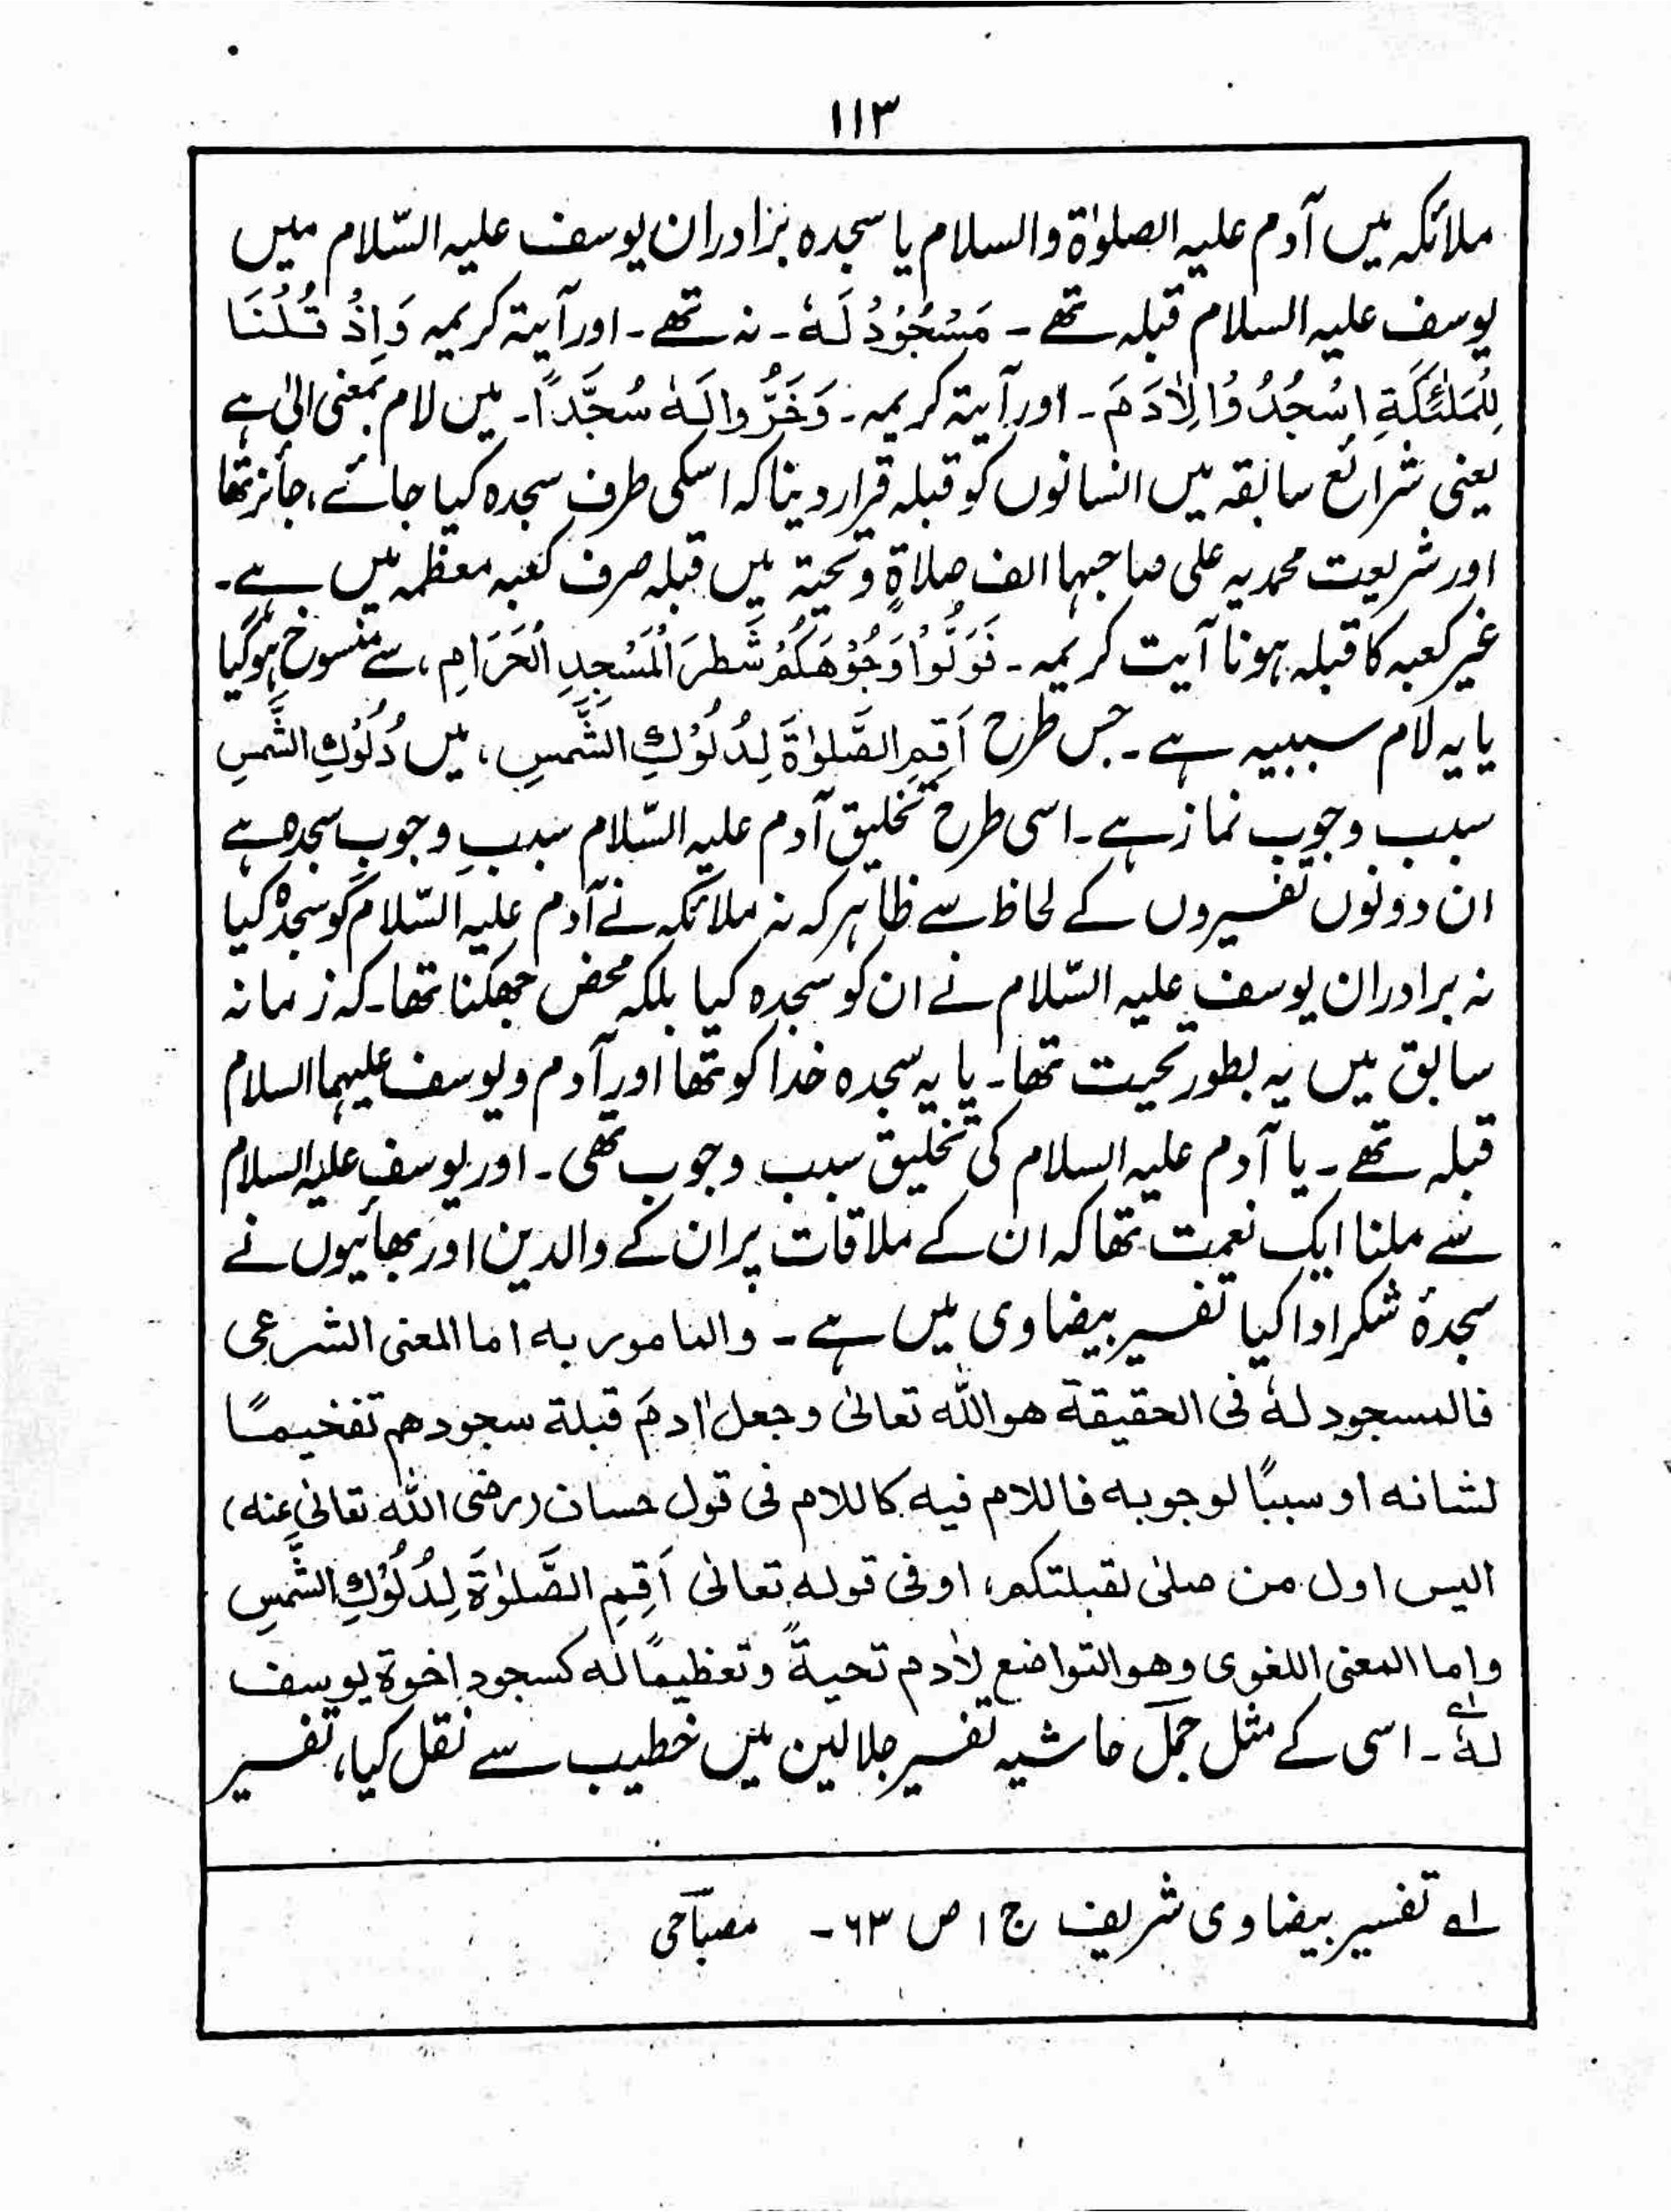 ۱۱۳
ملائکہ میں آدم علیہ الصلوٰۃ والسلام یا سجدہ بزادران یوسف علیہ السّلام میں
یوسف علیہ السلام قبلہ تھے ۔ مَسْجُوْدُ لَہٗ ۔ نہ تھے ۔ اور آیتہ کریمہ وَاِذْ قُلْنَا
لِلْمَلٰئِکَةِ اسْجُدُوْا لِاٰدَمَ ۔ اور آیتہ کریمہ ۔ وَخَرُّوا لَہٗ سُجَّداً ۔ میں لام بمعنی الیٰ ہے
یعنی شرائع سابقہ میں انسانوں کو قبلہ قرار دینا کہ اسکی طرف سجدہ کیا جائے ، جائز تھا
اور شریعت محمدیہ علی صاحبہا الف صلاۃٍ وتحیۃ میں قبلہ صرف کعبہ معظمہ میں ہے ۔
غیر کعبہ کا قبلہ ہونا آیت کریمہ ۔ فَوَلُّوْا وُجُوْهَكُمْ شَطرَ الْمَسْجِدِ الْحَرَامِ ، سے منسوخ ہوگیا
یا یہ لام سببیہ ہے ۔ جس طرح اَقِمِ الصَّلوٰةَ لِدُلُوْكِ الشَّمسِ ، میں دُلُوْكِ الشَّمسِ
سبب وجوب نماز ہے ۔ اسی طرح تخلیق آدم علیہ السّلام سببِ وجوبِ سجدہ ہے
ان دونوں تفسیروں کے لحاظ سے ظاہر کہ نہ ملائکہ نے آدم علیہ السّلام کو سجدہ کیا
نہ برادران یوسف علیہ السّلام نے ان کو سجدہ کیا بلکہ محض جھکنا تھا ۔ کہ زمانہ
سابق میں یہ بطور تحیت تھا ۔ یا یہ سجدہ خدا کو تھا اور آدم ویوسف علیہما السلام
قبلہ تھے ۔ یا آدم علیہ السلام کی تخلیق سبب وجوب تھی ۔ اور یوسف علیہ السلام
سے ملنا ایک نعمت تھا کہ ان کے ملاقات پر ان کے والدین اور بھائیوں نے
سجدۂ شکر ادا کیا تفسیر بیضاوی میں ہے ۔ والمامور به اما المعنی الشرعی
فالمسجود لهٗ فی الحقیقة هو الله تعالیٰ وجعل اٰدمَ قبلة سجودهم تفخیماً
لشانه او سبباً لوجوبه فاللام فیه کاللام فی قول حسان (رضی الله تعالیٰ عنه)
الیس اول من صلیٰ لقبلتکم، اوفی قوله تعالیٰ اَقِمِ الصَّلوٰةَ لِدُلُوْكِ الشَّمسِ
واما المعنی اللغوی وهو التواضع لاٰدم تحیةً وتعظیماً له کسجود اخوة یوسف
لهٗ ۱ے ۔ اسی کے مثل جمل حاشیہ تفسیر جلالین میں خطیب سے نقل کیا، تفسیر
۱ے تفسیر بیضاوی شریف ج ۱ ص ۶۳ ۔ مصباحی